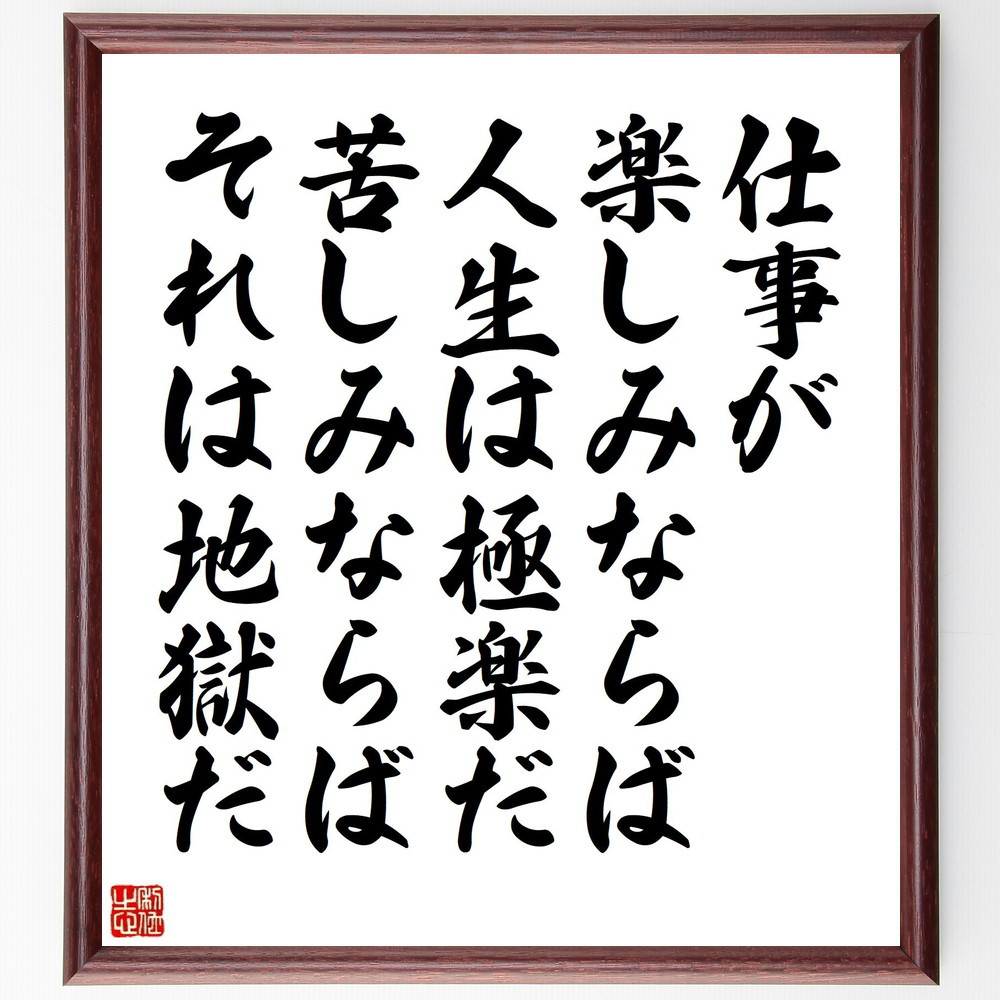 仕事が
楽しみならば
人生は極楽だ
苦しみならば
それは地獄だ